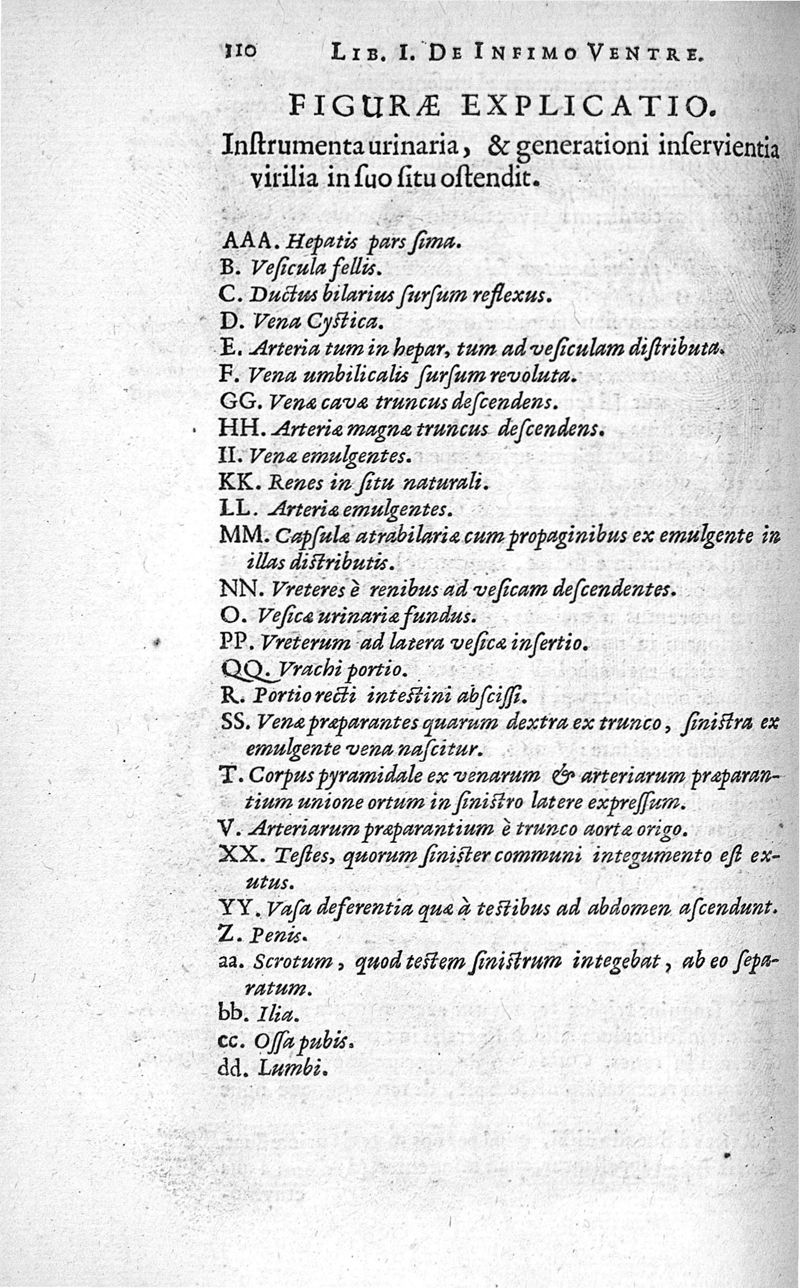 110 LIB. I. DE INFIMO VENTRE.
FIGURÆ EXPLICATIO.
Inſtrumenta urinaria, & generationi inſervientia
virilia in ſuo ſitu oſtendit.
AAA. Hepatis pars ſima.
B. Veſicula fellis.
C. Ductus bilarius ſurſum reflexus.
D. Vena Cyſtica.
E. Arteria tum in hepar, tum ad veſiculam diſtributa.
F. Vena umbilicalis ſurſum revoluta.
GG. Venæ cavæ truncus deſcendens.
HH. Arteriæ magnæ truncus deſcendens.
II. Venæ emulgentes.
KK. Renes in ſitu naturali.
LL. Arteriæ emulgentes.
MM. Capſulæ atrabilariæ cum propaginibus ex emulgente in
illas diſtributis.
NN. Vreteres è renibus ad veſicam deſcendentes.
O. Veſicæ urinariæ fundus.
PP. Vreterum ad latera veſicæ inſertio.
QQ. Vrachi portio.
R. Portio recti inteſtini abſciſſi.
SS. Venæ præparantes quarum dextra ex trunco, ſiniſtra ex
emulgente vena naſcitur.
T. Corpus pyramidale ex venarum & arteriarum præparan-
tium unione ortum in ſiniſtro latere expreſſum.
V. Arteriarum præparantium è trunco aortæ origo.
XX. Teſtes, quorum ſiniſter communi integumento eſt ex-
utus.
YY. Vaſa deferentia quæ à teſtibus ad abdomen aſcendunt.
Z. Penis.
aa. Scrotum, quod teſtem ſiniſtrum integebat, ab eo ſepa-
ratum.
bb. Ilia.
cc. Oſſa pubis.
dd. Lumbi.